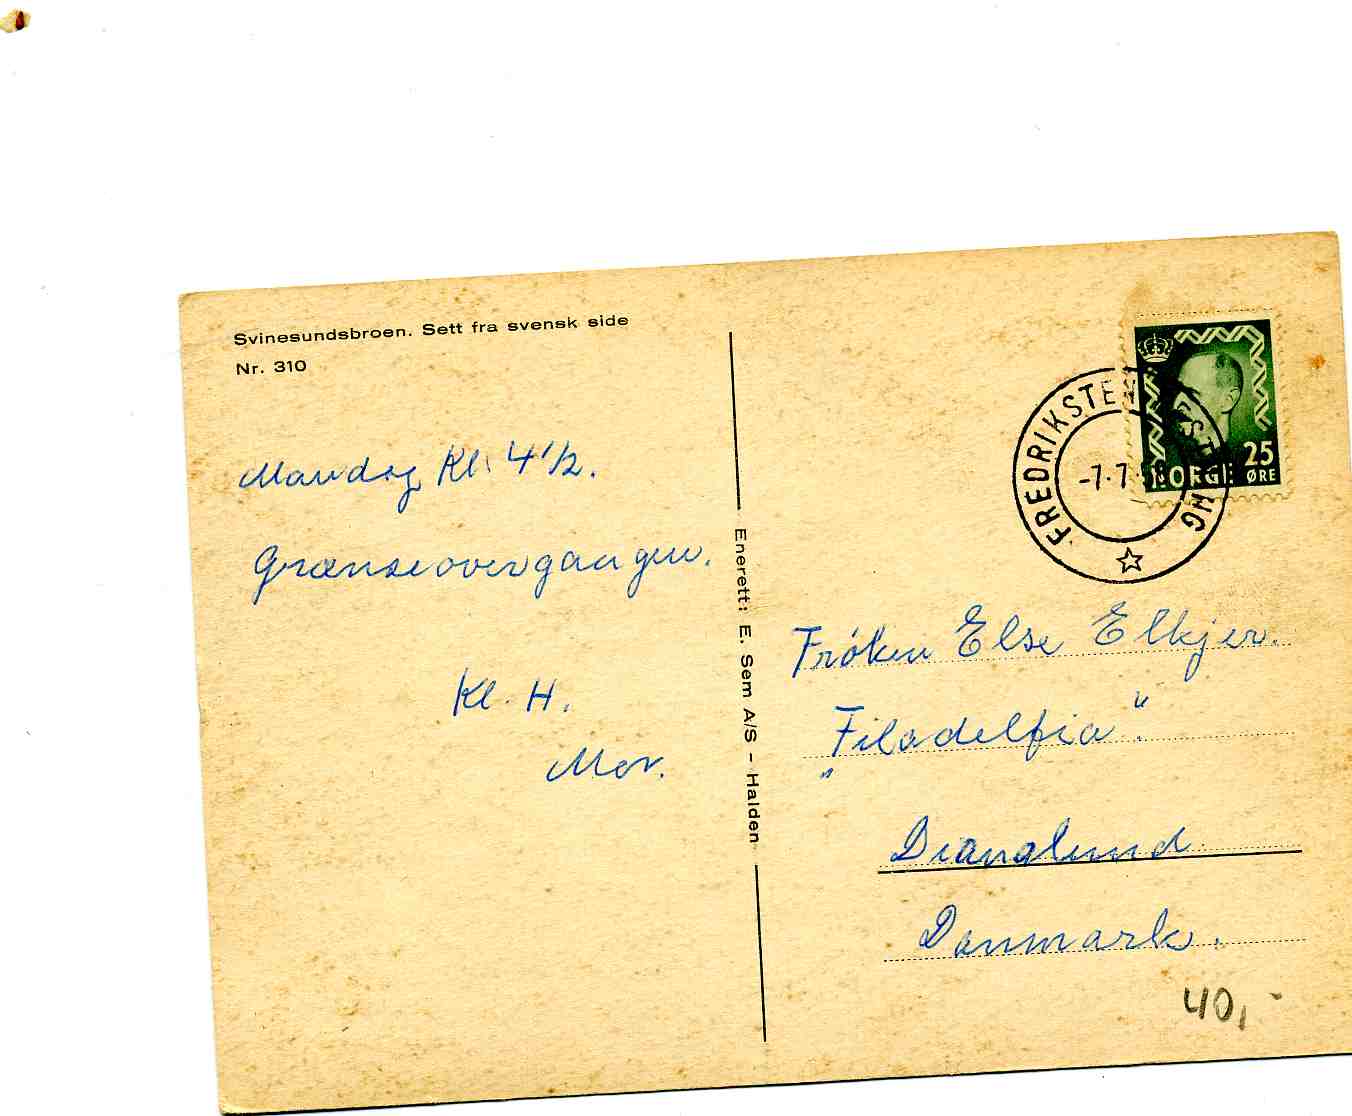 Svinesundsbroen. Sett fra svensk side
Nr. 310
Mandag Kl. 4 1/2.
Grænseovergangen.
Kl. H.
Mor.
Enerett: E. Sem A/S - Halden
FREDRIKSTEN FESTNING
-7.7.58
NORGE 25 ØRE
Frøken Else Elkjer.
"Filadelfia".
Dianalund
Danmark.
40,-